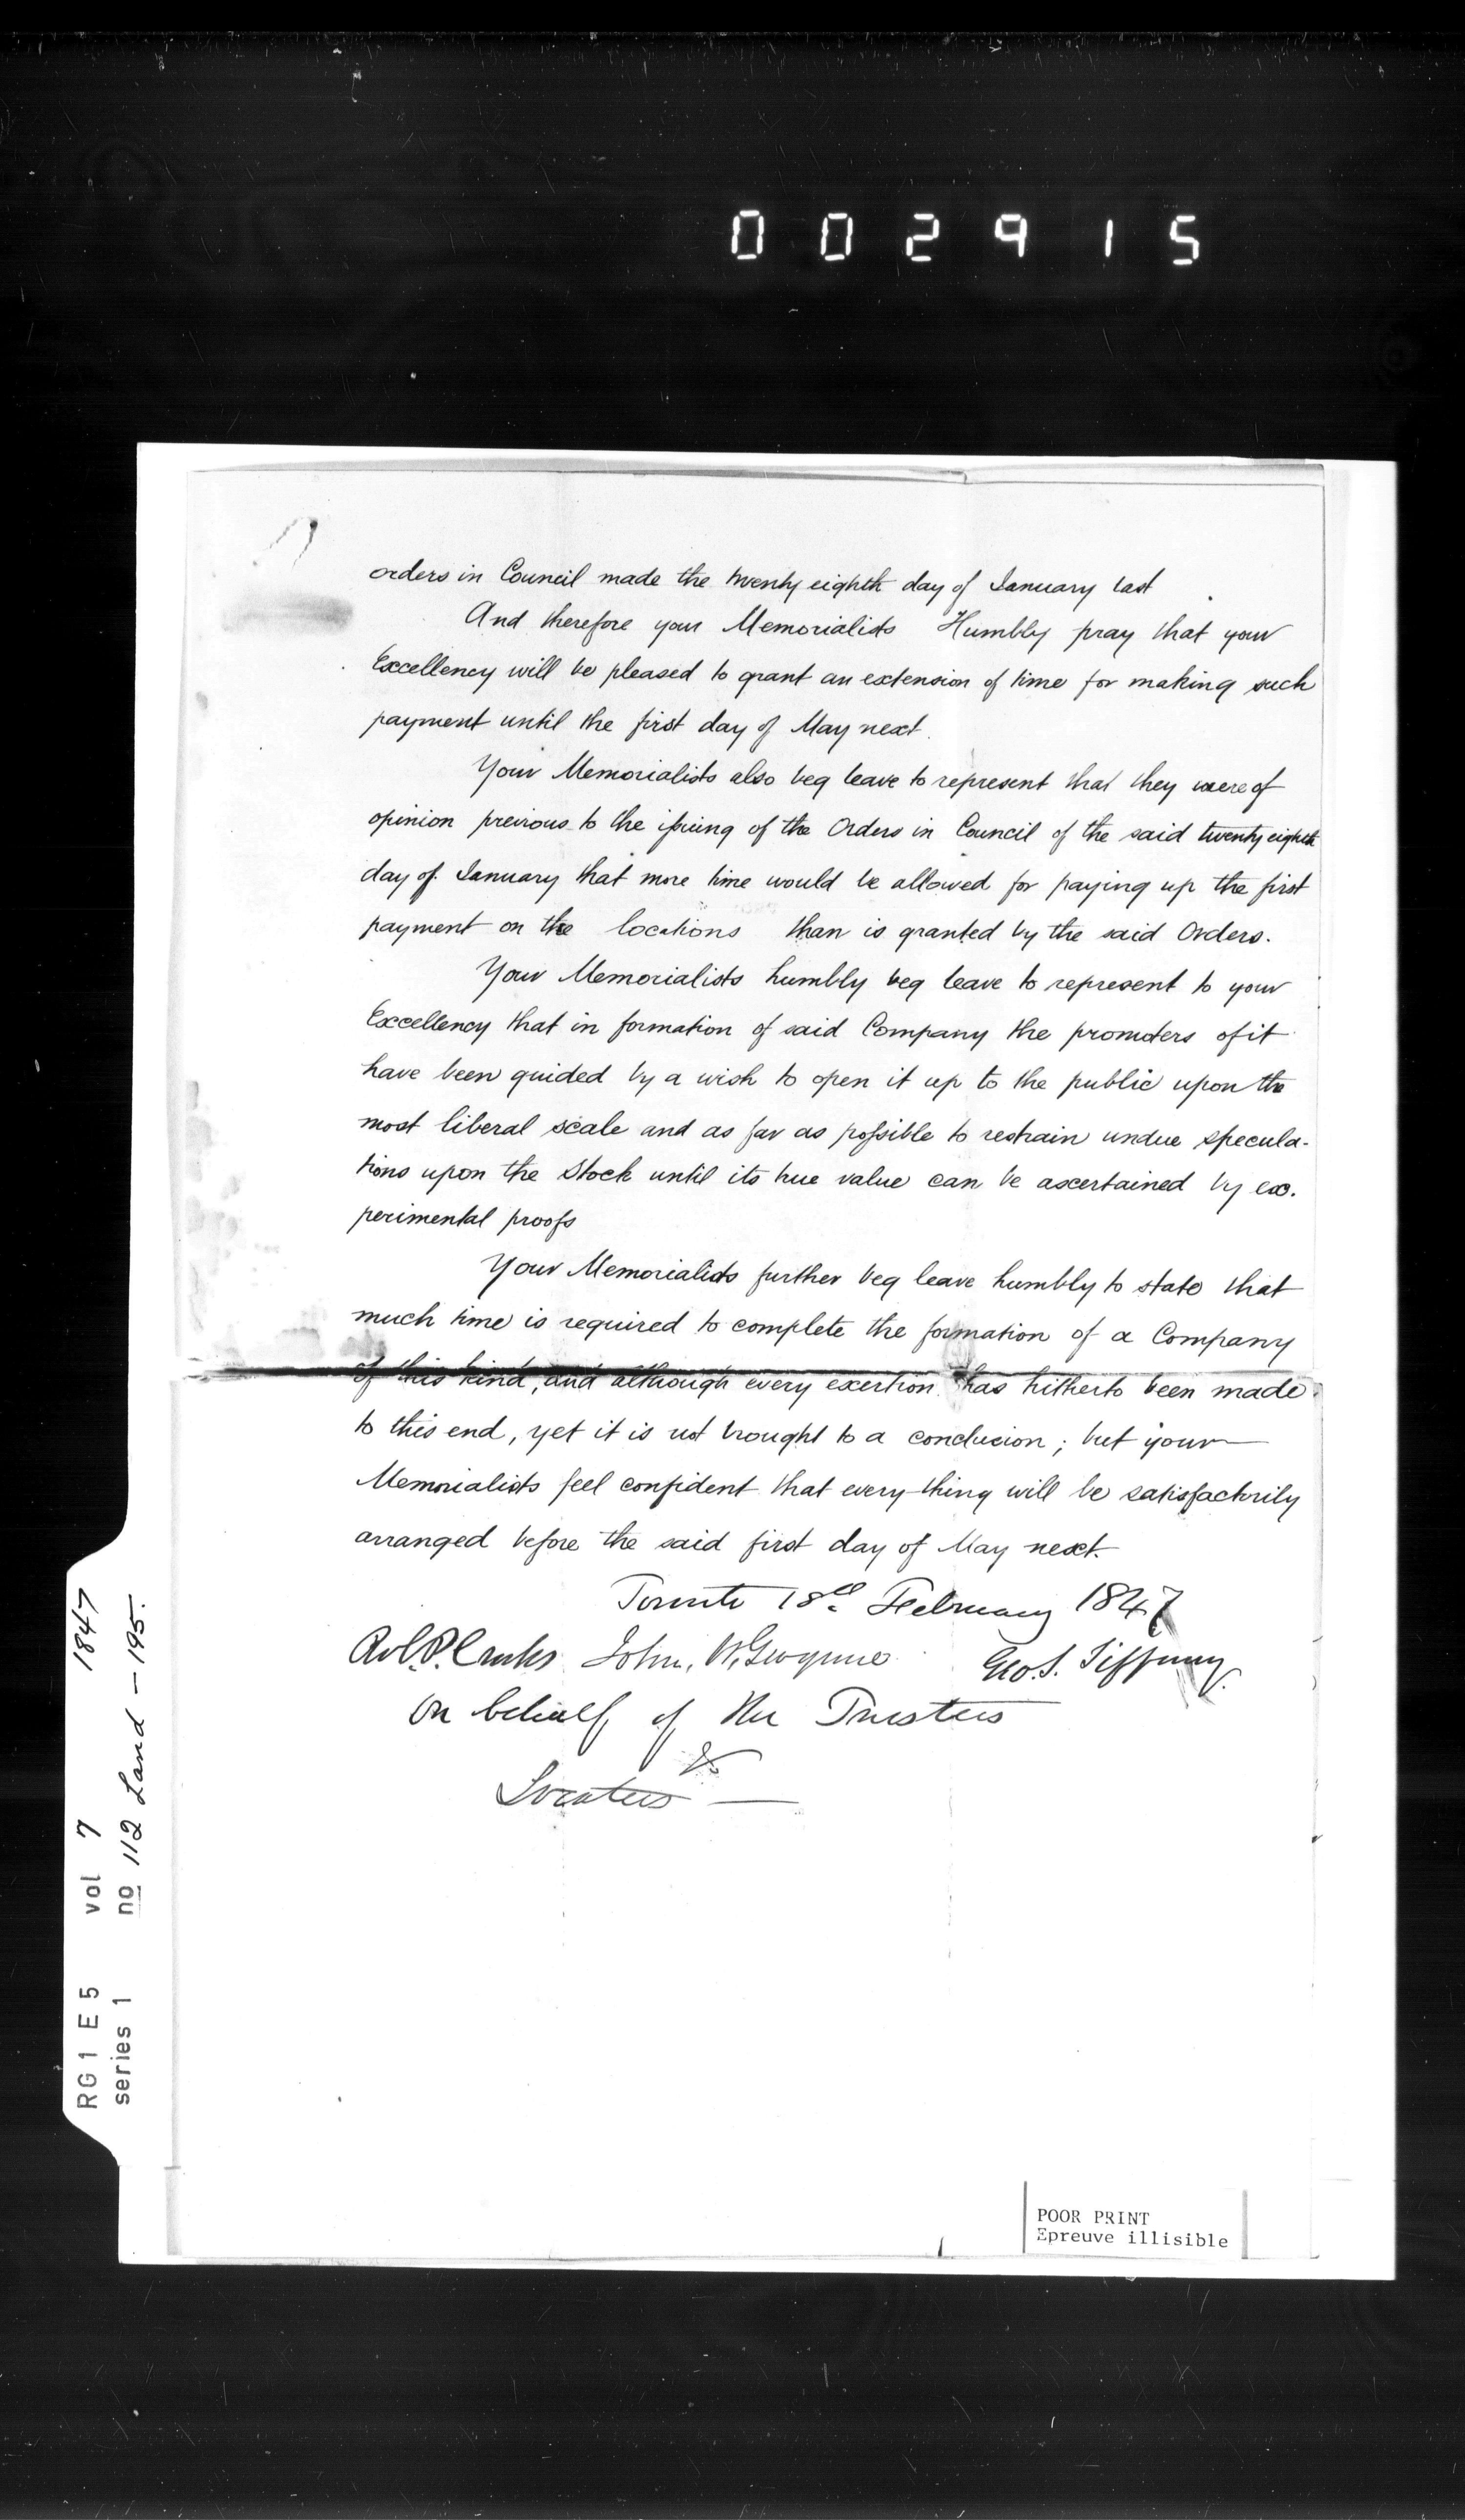 002915
orders in Council made the twenty eighth day of January last
And therefore your Memorialists Humbly pray that your
Excellency will be pleased to grant an extension of time for making such
payment until the first day of May next.
Your Memorialists also beg leave to represent that they were of
opinion previous to the issuing of the Orders in Council of the said twenty eighth
day of January that more time would be allowed for paying up the first
payment on the locations than is granted by the said Orders.
Your Memorialists humbly beg leave to represent to your
Excellency that in formation of said Company the promoters of it
have been guided by a wish to open it up to the public upon the
most liberal scale and as far as possible to restrain undue specula-
tions upon the Stock until its true value can be ascertained by ex-
perimental proofs
Your Memorialists further beg leave humbly to state that
much time is required to complete the formation of a Company
of this kind, and although every exertion has hitherto been made
to this end, yet it is not brought to a conclusion; but your
Memorialists feel confident that every thing will be satisfactorily
arranged before the said first day of May next.
Toronto 18th February 1847
John. W. Gwynne Geo. S. Tiffany
On behalf of the Trustees
&
Locatees —
RG 1 E 5 vol 7 1847
series 1 no 112 Land - 195.
POOR PRINT
Epreuve illisible